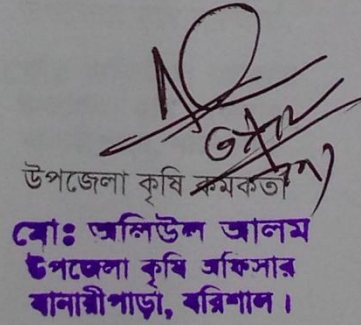 উপজেলা কৃষি কর্মকর্তা
মোঃ অলিউল আলম
উপজেলা কৃষি অফিসার
বানারীপাড়া, বরিশাল।